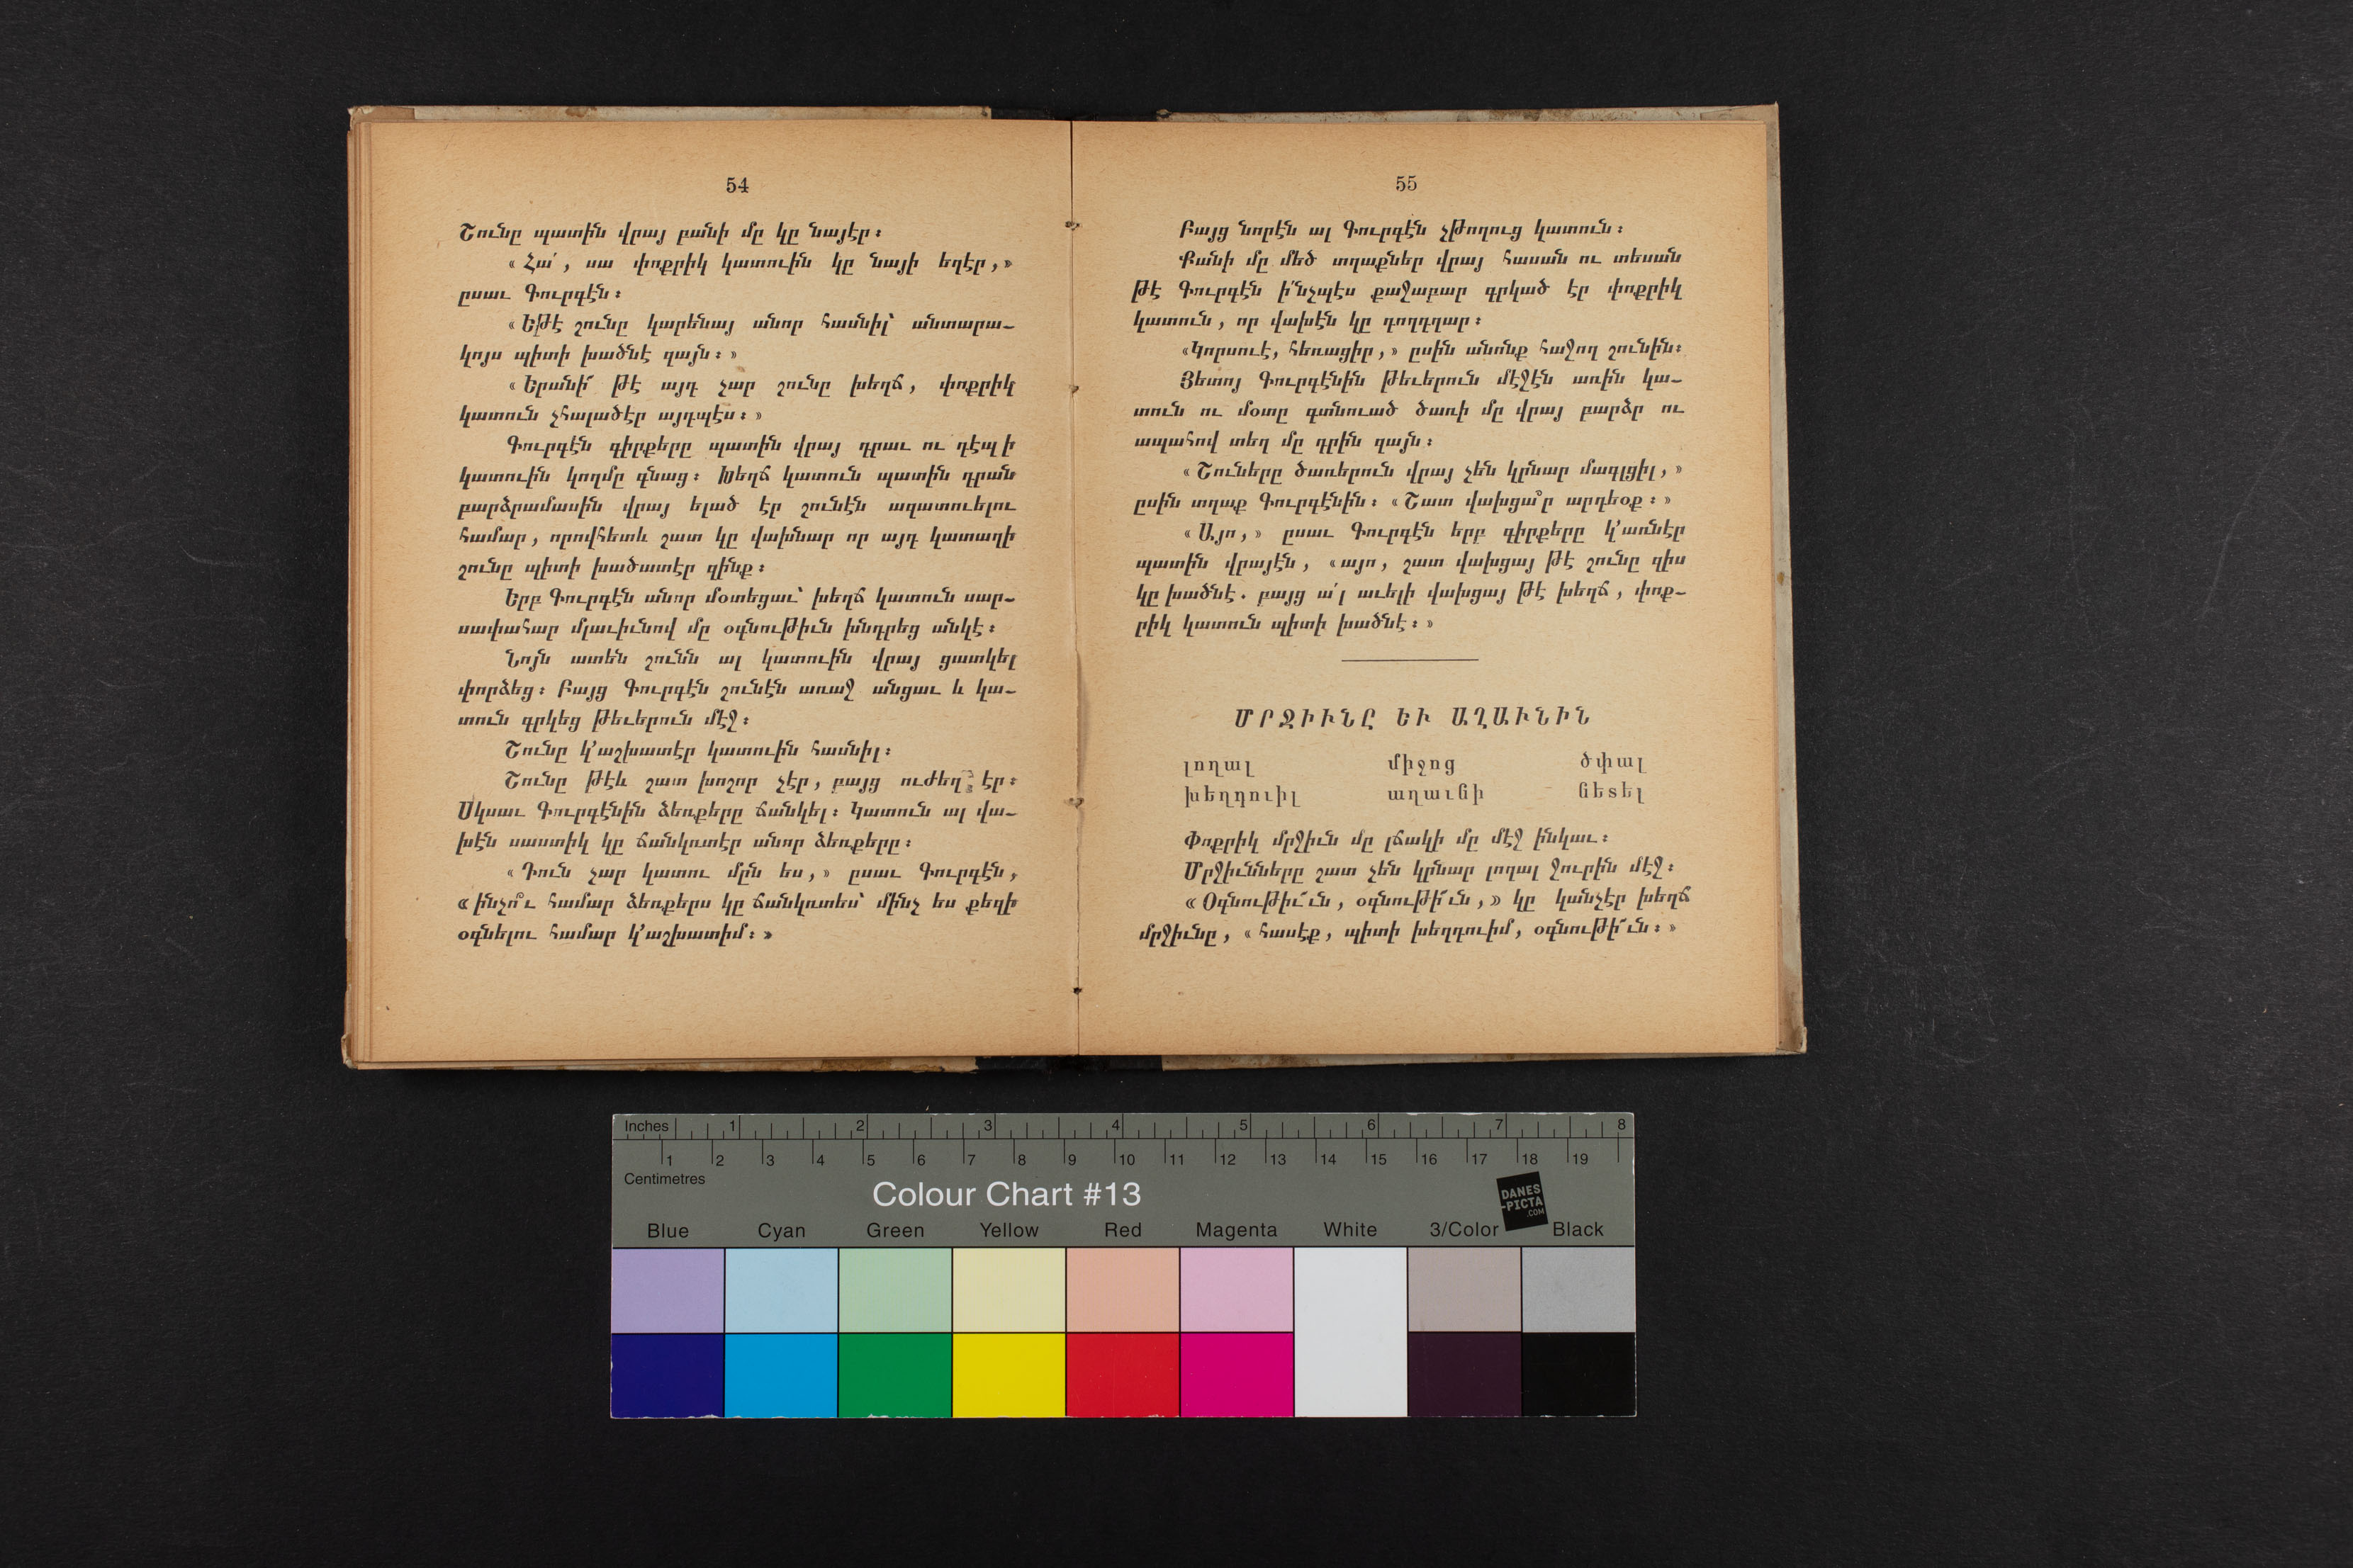 54
Շունը պատին վրայ բանի մը կը նայէր։
«Հա՛, սա փոքրիկ կատուին կը նայի եղէր,»
ըսաւ Գուրգէն։
«Եթէ շունը կարենայ անոր հասնիլ՝ անտարա-
կոյս պիտի խածնէ զայն։»
«Երանի՜ թէ այդ չար շունը խեղճ, փոքրիկ
կատուն չհալածէր այդպէս։»
Գուրգէն գիրքերը պատին վրայ դրաւ ու դէպ ի
կատուին կողմը գնաց։ Խեղճ կատուն պատին դրան
բարձրամասին վրայ ելած էր շունէն ազատուելու
համար, որովհետև շատ կը վախնար որ այդ կատաղի
շունը պիտի խածատէր զինք։
Երբ Գուրգէն անոր մօտեցաւ՝ խեղճ կատուն սար-
սափահար մլաւիւնով մը օգնութիւն խնդրեց անկէ։
Նոյն ատեն շունն ալ կատուին վրայ ցատկել
փորձեց։ Բայց Գուրգէն շունէն առաջ անցաւ և կա-
տուն գրկեց թեւերուն մէջ։
Շունը կ՚աշխատէր կատուին հասնիլ։
Շունը թէև շատ խոշոր չէր, բայց ուժեղ էր։
Սկսաւ Գուրգէնին ձեռքերը ճանկել։ Կատուն ալ վա-
խէն սաստիկ կը ճանկռտէր անոր ձեռքերը։
«Դուն չար կատու մըն ես,» ըսաւ Գուրգէն,
«ինչո՞ւ համար ձեռքերս կը ճանկռտես՝ մինչ ես քեզի
օգնելու համար կ՚աշխատիմ։»
55
Բայց նորէն ալ Գուրգէն չթողուց կատուն։
Քանի մը մեծ տղաքներ վրայ հասան ու տեսան
թէ Գուրգէն ի՛նչպէս քաջաբար գրկած էր փոքրիկ
կատուն, որ վախէն կը դողդղար։
«Կորսուէ, հեռացիր,» ըսին անոնք հաջող շունին։
Յետոյ Գուրգէնին թեւերուն մէջէն առին կա-
տուն ու մօտը գտնուած ծառի մը վրայ բարձր ու
ապահով տեղ մը դրին զայն։
«Շուները ծառերուն վրայ չեն կրնար մագլցիլ,»
ըսին տղաք Գուրգէնին։ «Շատ վախցա՞ր արդեօք։»
«Այո,» ըսաւ Գուրգէն երբ գիրքերը կ՚առնէր
պատին վրայէն, «այո, շատ վախցայ թէ շունը զիս
կը խածնէ. բայց ա՛լ աւելի վախցայ թէ խեղճ, փոք-
րիկ կատուն պիտի խածնէ։»
ՄՐՋԻՒՆԸ ԵՒ ԱՂԱՒՆԻՆ
լողալ միջոց ծփալ
խեղդուիլ աղաւնի նետել
Փոքրիկ մրջիւն մը լճակի մը մէջ ինկաւ։
Մրջիւնները շատ չեն կրնար լողալ ջուրին մէջ։
«Օգնութիւ՜ն, օգնութի՜ւն,» կը կանչէր խեղճ
մրջիւնը, «հասէք, պիտի խեղդուիմ, օգնութի՜ւն։»
Inches 1 2 3 4 5 6 7 8
1 2 3 4 5 6 7 8 9 10 11 12 13 14 15 16 17 18 19
Centimetres
Colour Chart #13
DANES
-PICTA
.COM
Blue Cyan Green Yellow Red Magenta White 3/Color Black